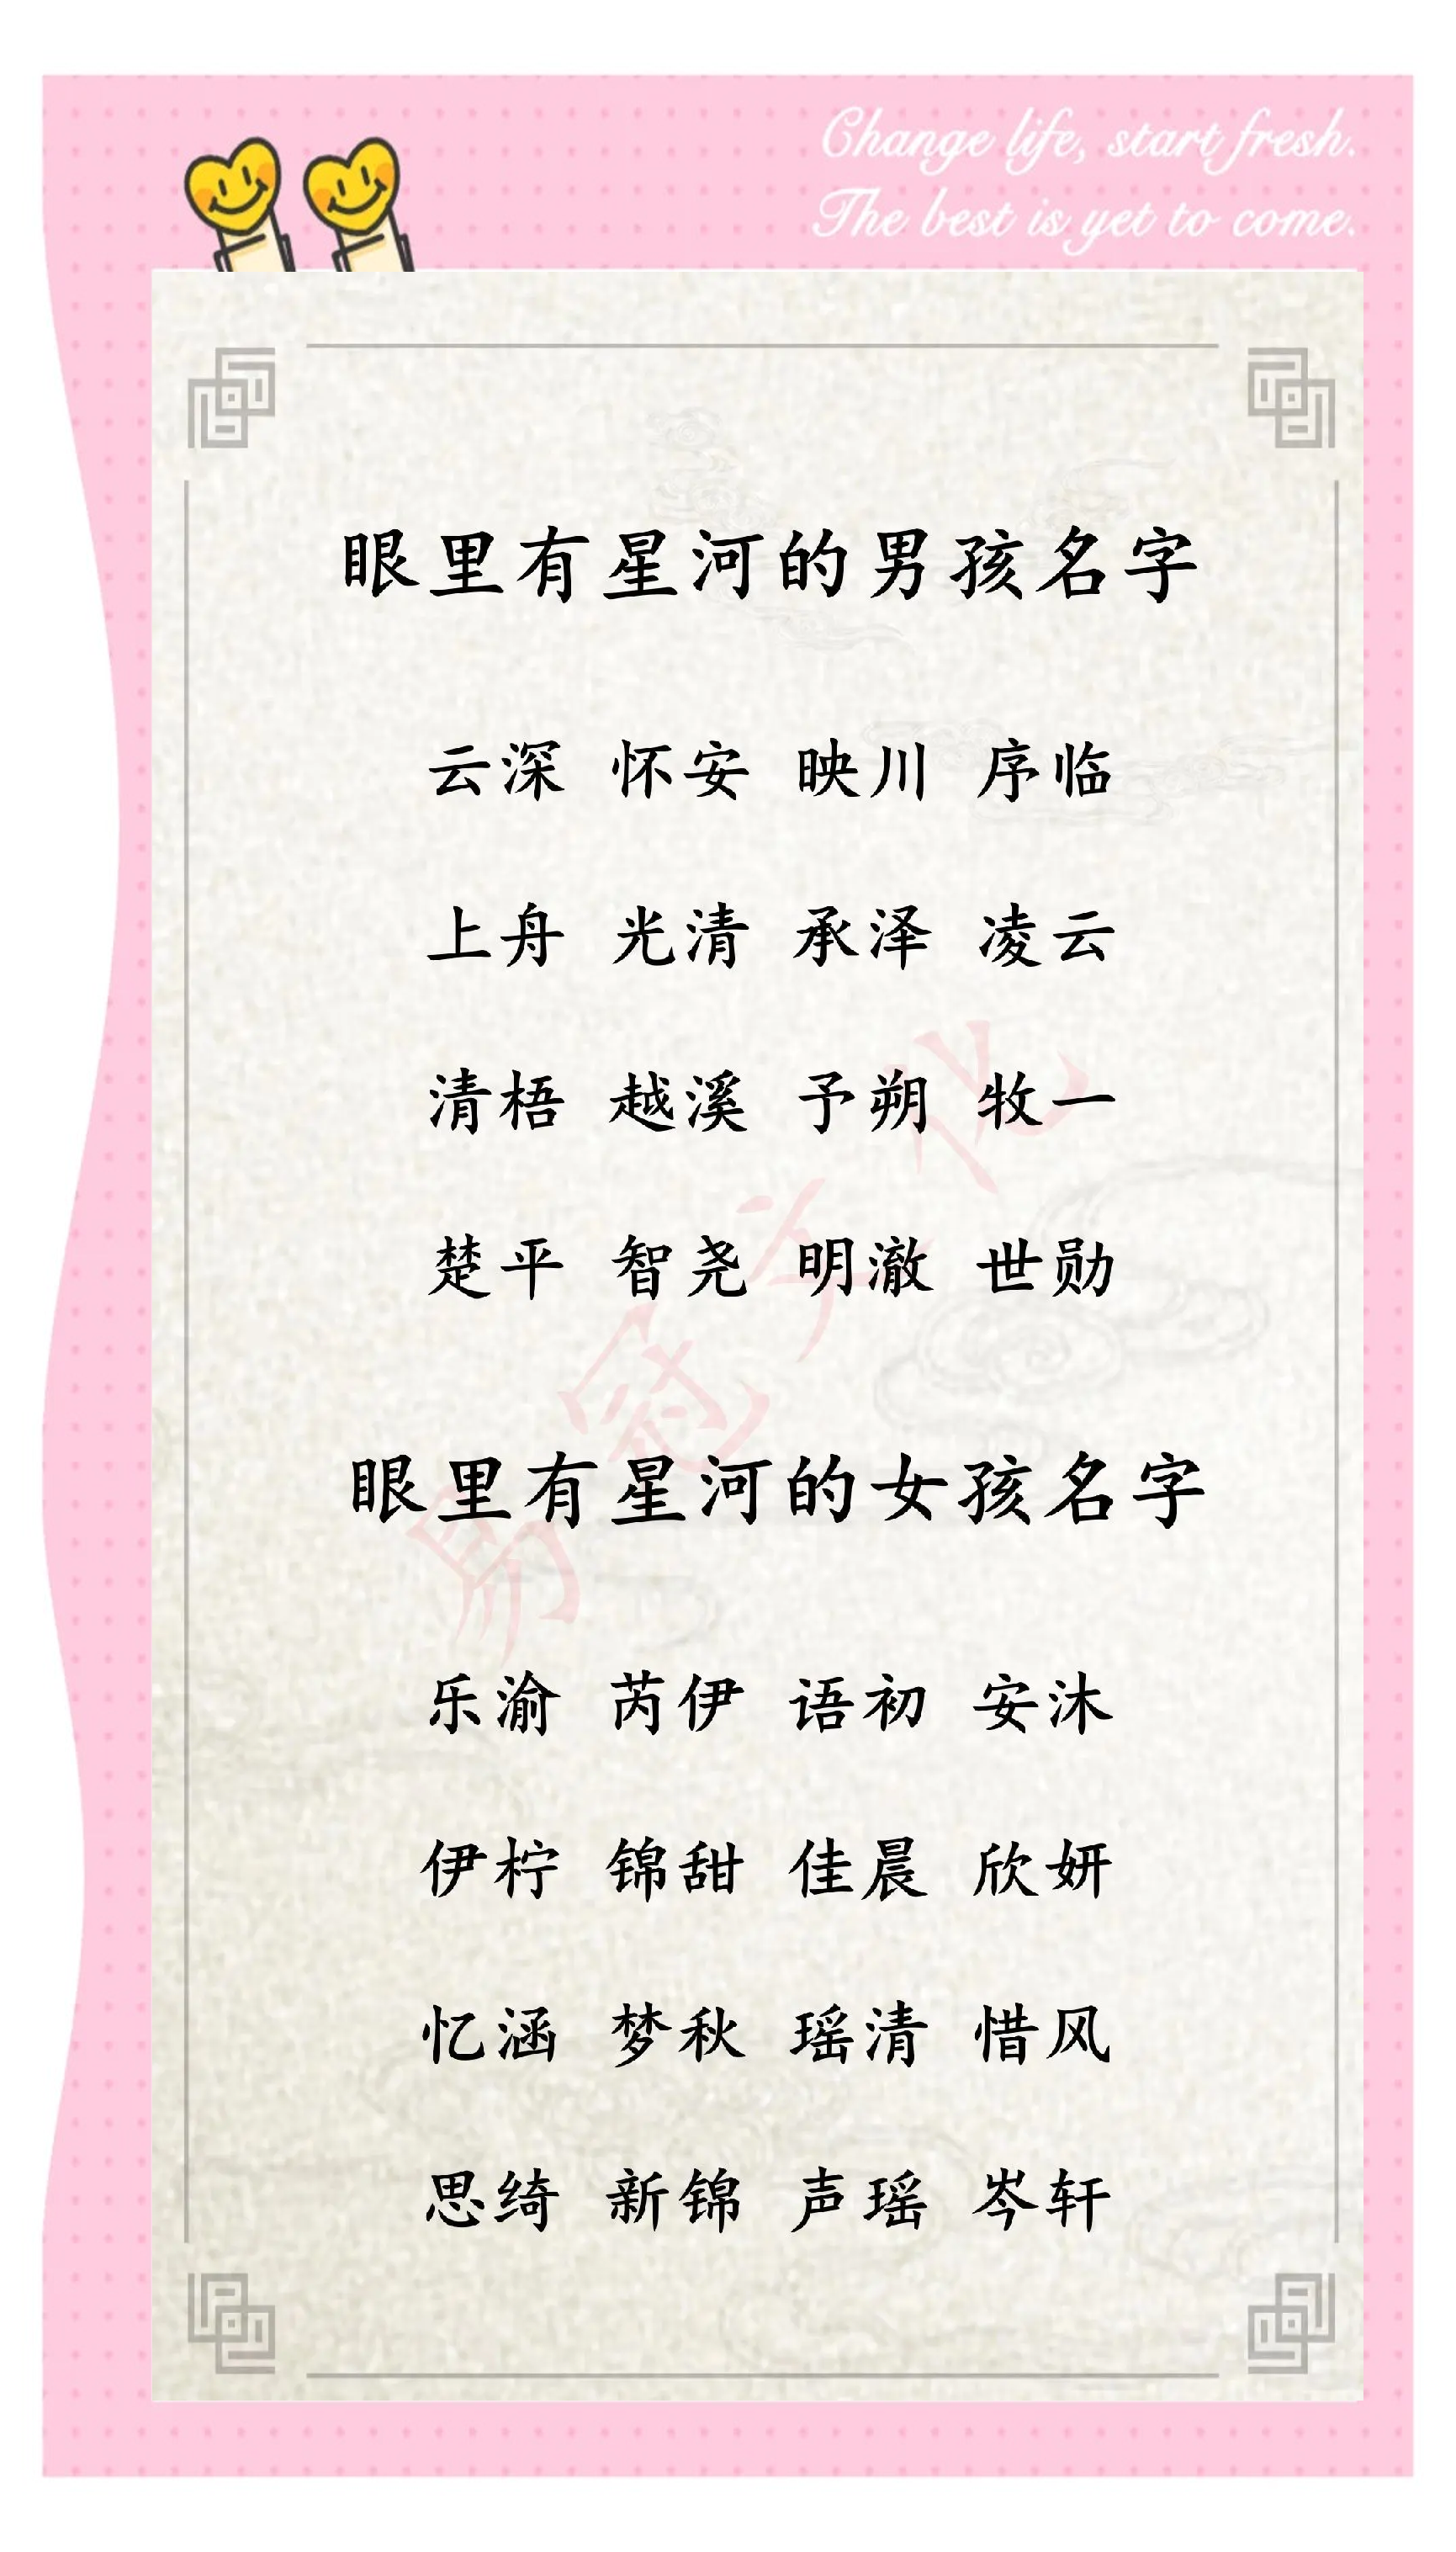 Change life, start fresh.
The best is yet to come.
眼里有星河的男孩名字
云深 怀安 映川 序临
上舟 光清 承泽 凌云
清梧 越溪 予朔 牧一
楚平 智尧 明澈 世勋
眼里有星河的女孩名字
乐渝 芮伊 语初 安沐
伊柠 锦甜 佳晨 欣妍
忆涵 梦秋 瑶清 惜风
思绮 新锦 声瑶 岑轩
易冠文化